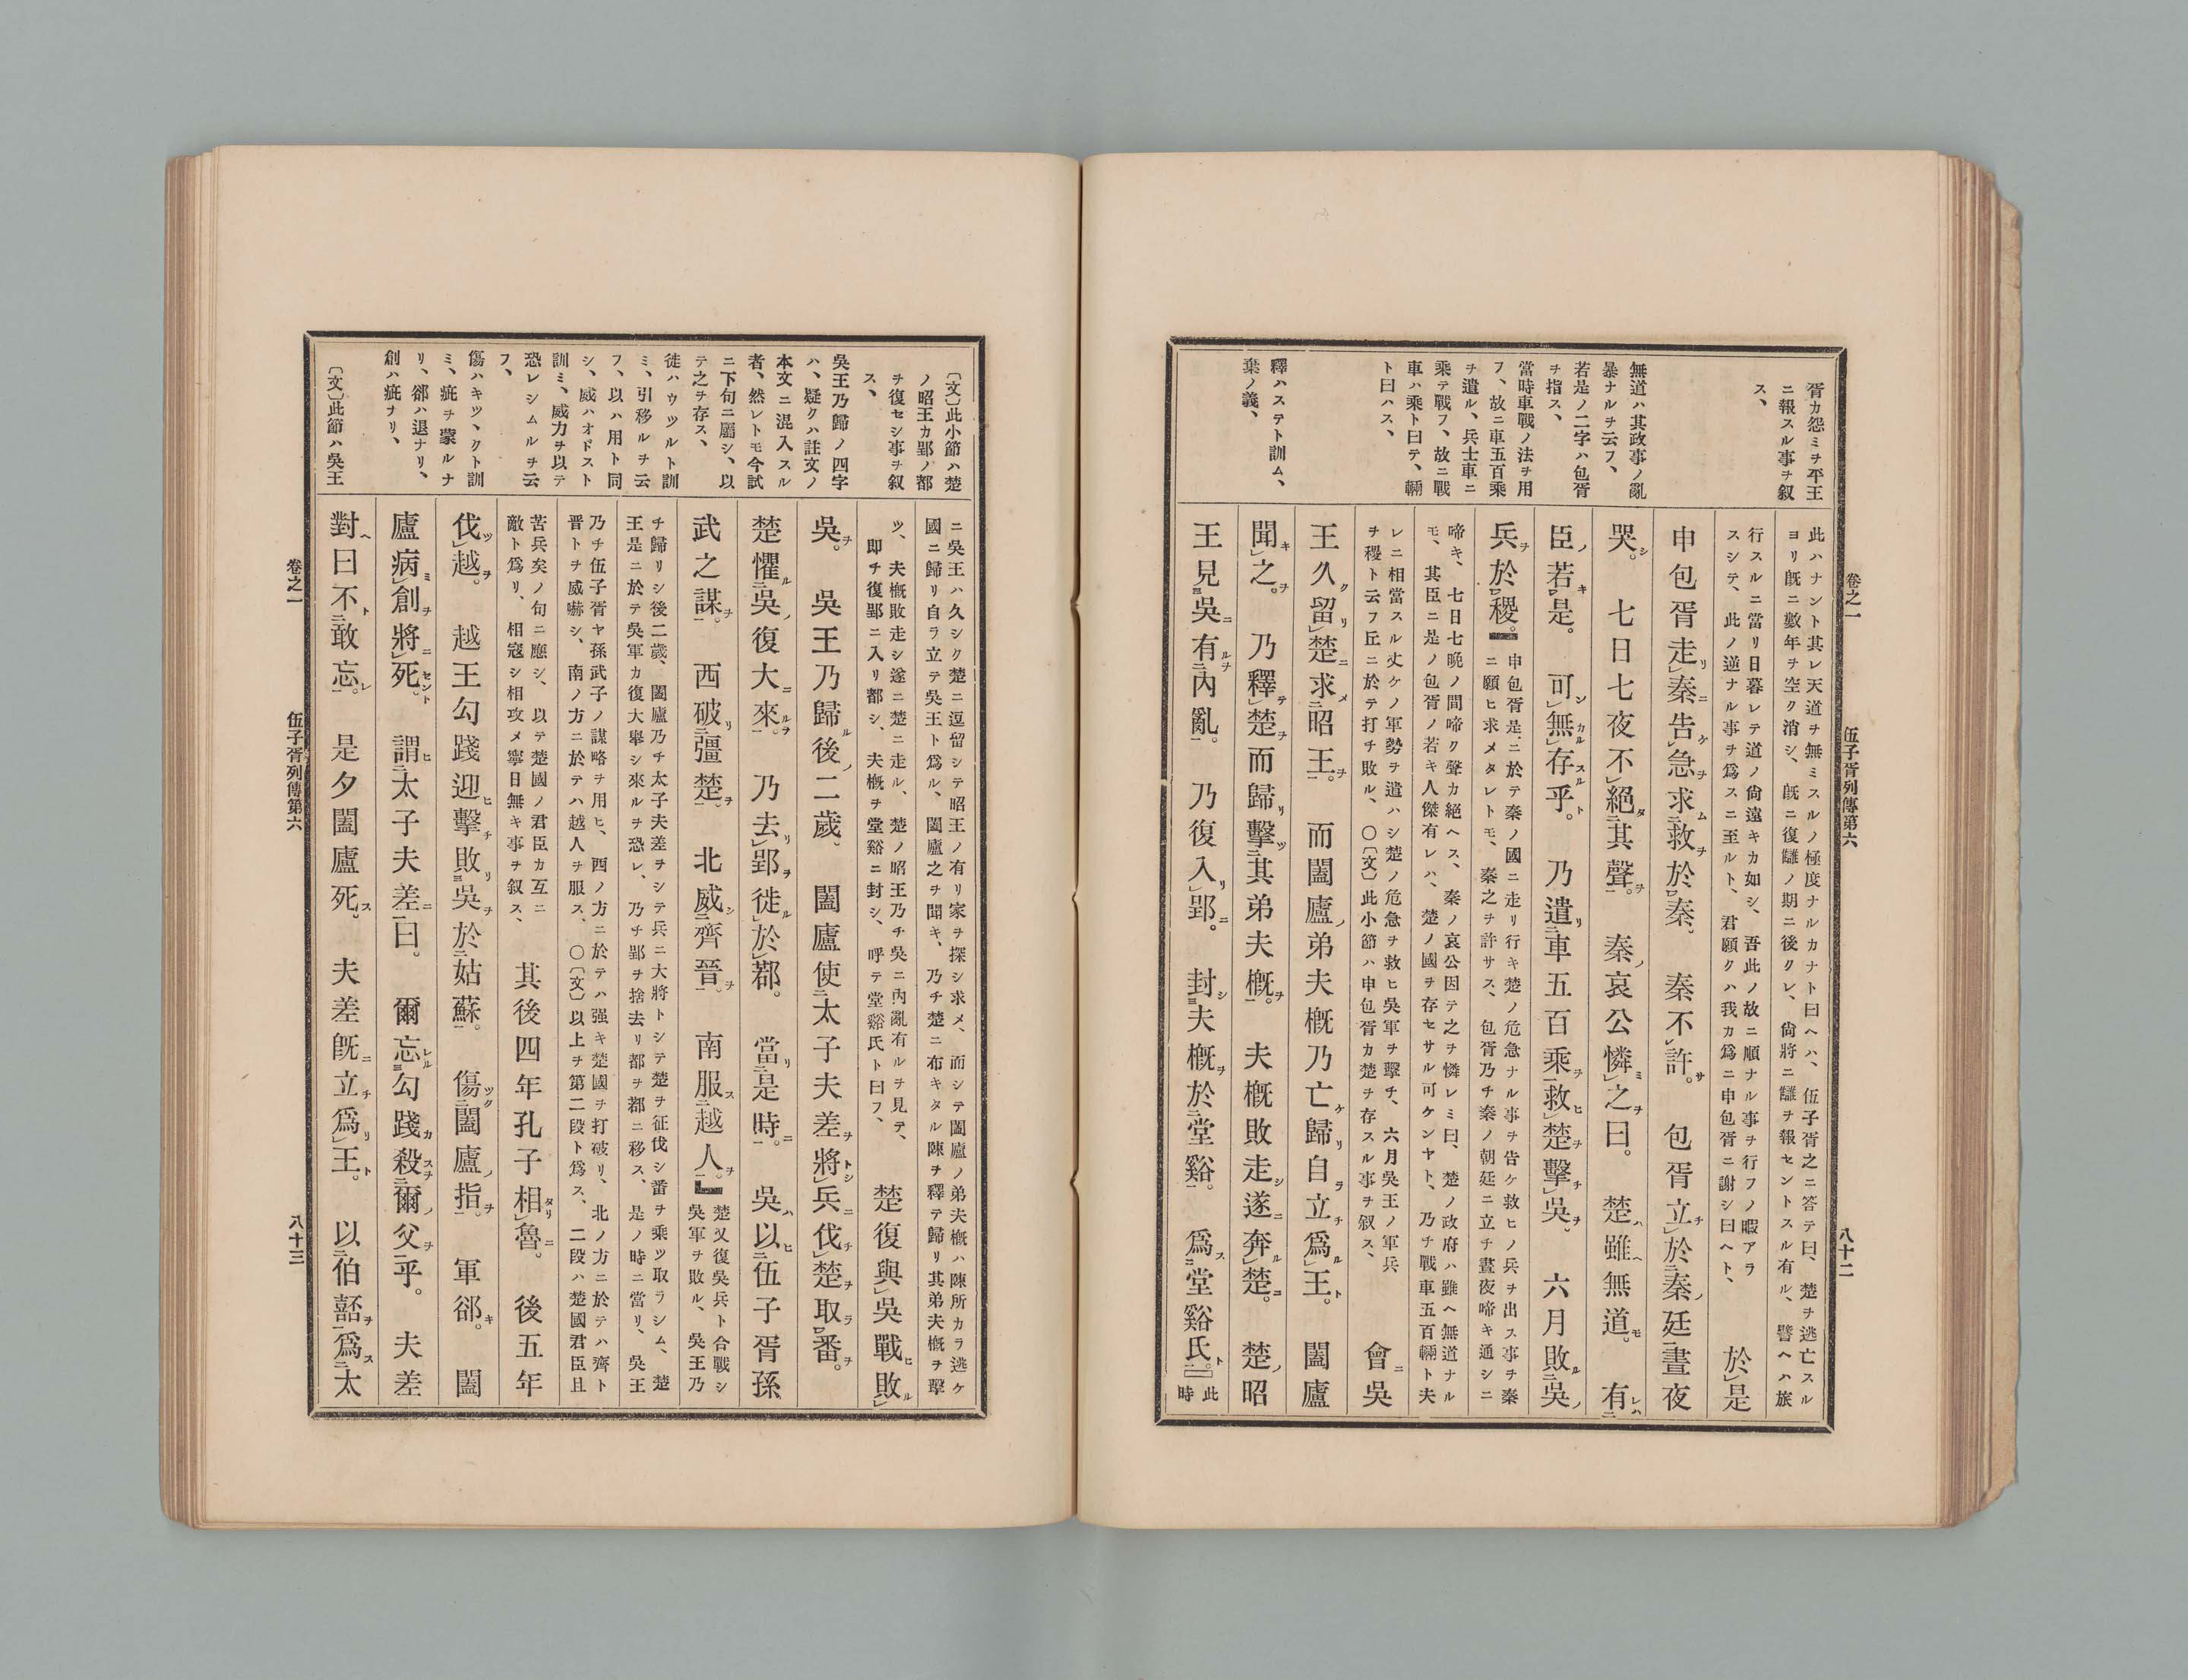 卷之一　伍子胥列傳第六　八十二
胥カ怨ミヲ平王
ニ報スル事ヲ叙
ス、
無道ハ其政事ノ亂
暴ナルヲ云フ、
若是ノ二字ハ包胥
ヲ指ス、
當時車戰ノ法ヲ用
フ、故ニ車五百乘
ヲ遣ル、兵士車ニ
乘テ戰フ、故ニ戰
車ハ乘ト曰テ、輛
ト曰ハス、
釋ハステト訓ム、
棄ノ義、
此ハナント其レ天道ヲ無ミスルノ極度ナルカナト曰ヘハ、伍子胥之ニ答テ曰、楚ヲ逃亡スル
ヨリ既ニ數年ヲ空ク消シ、既ニ復讎ノ期ニ後クレ、尙將ニ讎ヲ報セントスル有ル、譬ヘハ旅
行スルニ當リ日暮レテ道ノ尙遠キカ如シ、吾此ノ故ニ順ナル事ヲ行フノ暇アラ
スシテ、此ノ逆ナル事ヲ爲スニ至ルト、君願クハ我カ爲ニ申包胥ニ謝シ曰ヘト、
於是
申包胥走リ秦ニ告ケ急ヲ求ム救ヲ於秦。秦不許サ。包胥立チ於秦ノ廷晝夜
哭シ。七日七夜不絕タ其聲ヲ。秦ノ哀公憐ミ之ヲ曰。楚ハ雖ヘ無道モ。有レハ
臣ノ若キ是。可ン無カル存スル乎ト。乃遣リ車五百乘ヲ救ヒ楚ヲ擊チ吳ヲ。六月敗ル吳ノ
兵ヲ於稷。
申包胥是ニ於テ秦ノ國ニ走リ行キ楚ノ危急ナル事ヲ告ケ救ヒノ兵ヲ出ス事ヲ秦
ニ願ヒ求メタレトモ、秦之ヲ許サス、包胥乃チ秦ノ朝廷ニ立チ晝夜啼キ通シニ
啼キ、七日七晩ノ間啼ク聲カ絕ヘス、秦ノ哀公因テ之ヲ憐レミ曰、楚ノ政府ハ雖ヘ無道ナル
モ、其臣ニ是ノ包胥ノ若キ人傑有レハ、楚ノ國ヲ存セサル可ケンヤト、乃チ戰車五百輛ト夫
レニ相當スル丈ケノ軍勢ヲ遣ハシ楚ノ危急ヲ救ヒ吳軍ヲ擊チ、六月吳王ノ軍兵
ヲ稷ト云フ丘ニ於テ打チ敗ル、〇〔文〕此小節ハ申包胥カ楚ヲ存スル事ヲ叙ス、
會ニ吳
王久ク留リ楚ニ求メ昭王ヲ。而闔廬ノ弟夫槪乃亡ケ歸リ自ラ立チ爲ル王ト。闔廬
聞キ之ヲ。乃釋テ楚ヲ而歸リ擊ツ其弟夫槪ヲ。夫槪敗走シ遂ニ奔ル楚ニ。楚ノ昭
王見吳ニ有ルヲ內亂。乃復入リ郢ニ。封シ夫槪ヲ於堂谿。爲ス堂谿氏ト。
此
時
〔文〕此小節ハ楚
ノ昭王カ郢ノ都
ヲ復セシ事ヲ叙
ス、
吳王乃歸ノ四字
ハ、疑クハ註文ノ
本文ニ混入スル
者、然レトモ今試
ニ下句ニ屬シ、以
テ之ヲ存ス、
徙ハウツルト訓
ミ、引移ルヲ云
フ、以ハ用ト同
シ、威ハオドスト
訓ミ、威力ヲ以テ
恐レシムルヲ云
フ、
傷ハキツヽクト訓
ミ、疵ヲ蒙ルナ
リ、郤ハ退ナリ、
創ハ疵ナリ、
〔文〕此節ハ吳王
ニ吳王ハ久シク楚ニ逗留シテ昭王ノ有リ家ヲ探シ求メ、而シテ闔廬ノ弟夫槪ハ陳所カラ逃ケ
國ニ歸リ自ラ立テ吳王ト爲ル、闔廬之ヲ聞キ、乃チ楚ニ布キタル陳ヲ釋テ歸リ其弟夫槪ヲ擊
ツ、夫槪敗走シ遂ニ楚ニ走ル、楚ノ昭王乃チ吳ニ內亂有ルヲ見テ、
即チ復郢ニ入リ都シ、夫槪ヲ堂谿ニ封シ、呼テ堂谿氏ト曰フ、
楚復與吳戰ヒ敗ル
吳ヲ。吳王乃歸ル後ノ二歲、闔廬使太子夫差ヲ將トシ兵ニ伐チ楚ヲ取ラ番ヲ。
楚懼ル吳ノ復大ニ來ルヲ。乃去リ郢ヲ徙ル於鄀。當リ是時ニ。吳ハ以ヒ伍子胥孫
武之謀ヲ。西破リ彊楚ヲ。北威シ齊晉ヲ。南服ス越人ヲ。
楚又復吳兵ト合戰シ
吳軍ヲ敗ル、吳王乃
チ歸リシ後二歲、闔廬乃チ太子夫差ヲシテ兵ニ大將トシテ楚ヲ征伐シ番ヲ乘ツ取ラシム、楚
王是ニ於テ吳軍カ復大擧シ來ルヲ恐レ、乃チ郢ヲ捨去リ都ヲ鄀ニ移ス、是ノ時ニ當リ、吳王
乃チ伍子胥ヤ孫武子ノ謀略ヲ用ヒ、西ノ方ニ於テハ强キ楚國ヲ打破リ、北ノ方ニ於テハ齊ト
晋トヲ威嚇シ、南ノ方ニ於テハ越人ヲ服ス、〇〔文〕以上ヲ第二段ト爲ス、二段ハ楚國君臣且
苦兵矣ノ句ニ應シ、以テ楚國ノ君臣カ互ニ
敵ト爲リ、相寇シ相攻メ寧日無キ事ヲ叙ス、
其後四年孔子相タリ魯ニ。後五年
伐ツ越ヲ。越王勾踐迎ヒ擊チ敗リ吳ヲ於姑蘇。傷ツク闔廬ノ指ヲ。軍郤キ。闔
廬病ミ創ヲ將ニ死セント。謂ヒ太子夫差ニ曰。爾忘レル勾踐カ殺スヲ爾ノ父ヲ乎。夫差
對ヘ曰不ト敢忘レ。是夕闔廬死ス。夫差既ニ立チ爲リ王ト。以伯嚭ヲ爲ス太
卷之一　伍子胥列傳第六　八十三